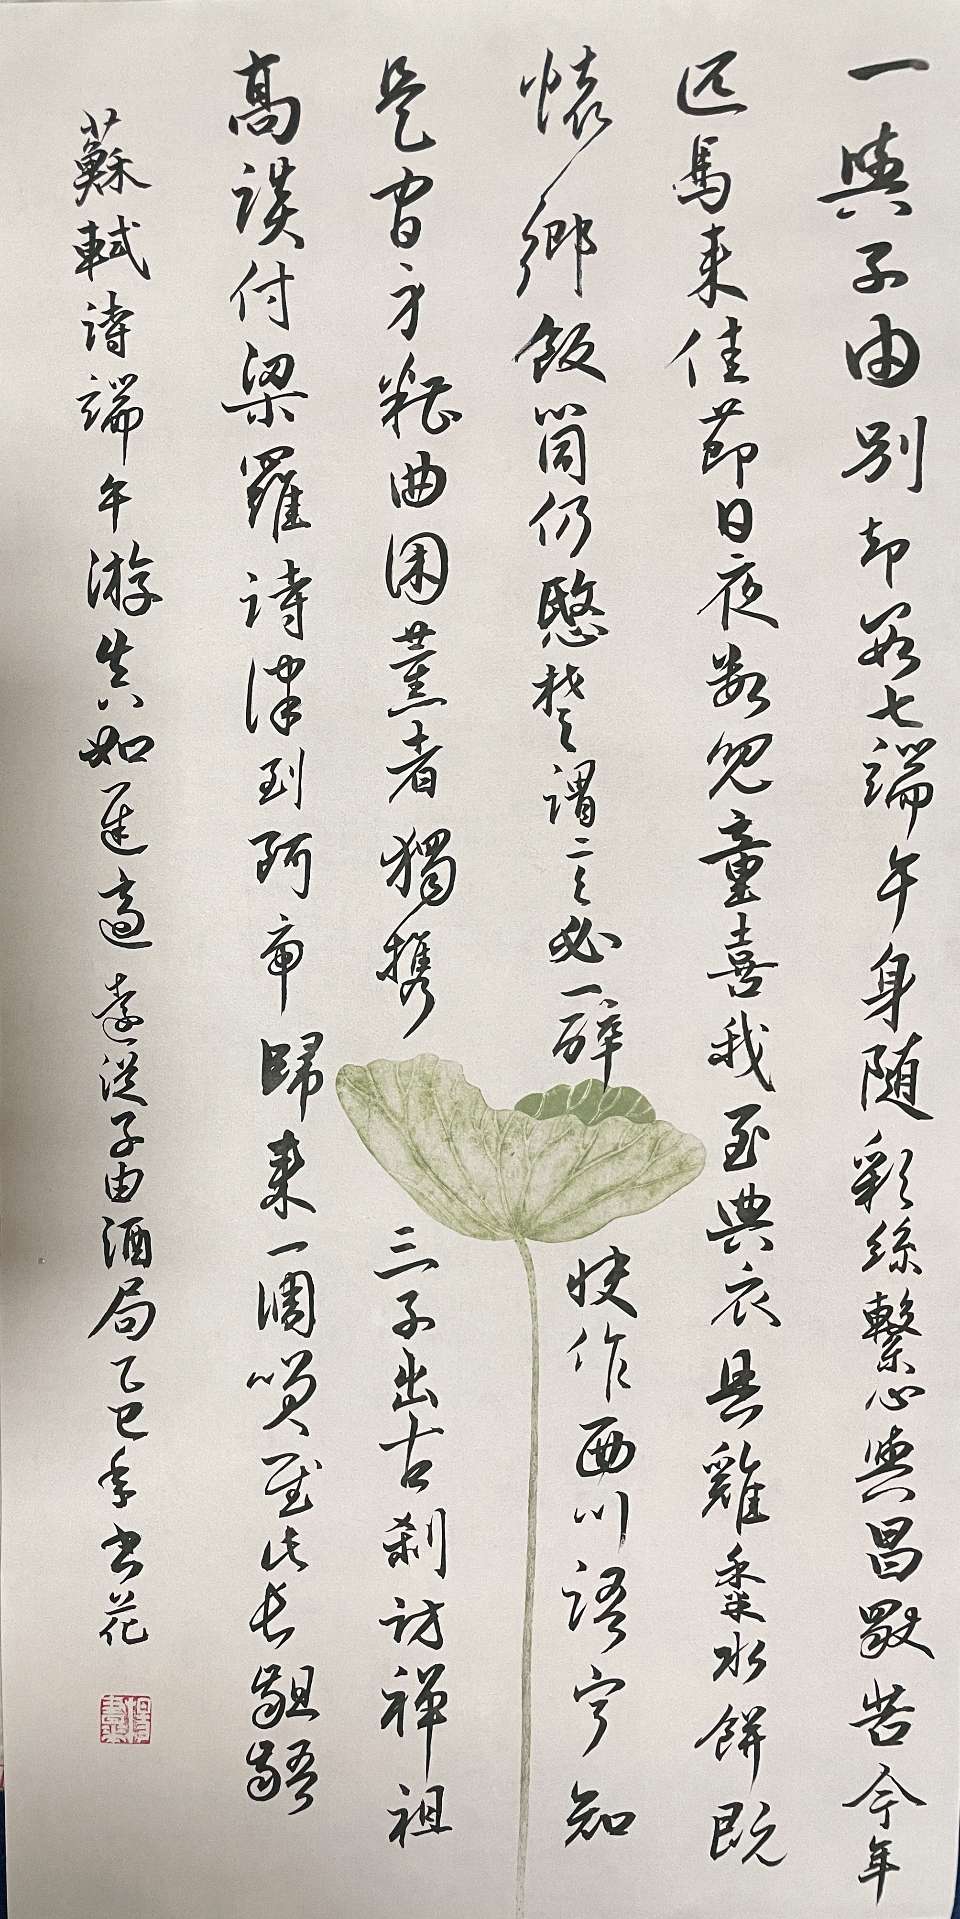 一與子由别却数七端午身随彩絲繫心與昌歜苦今年
匹馬来佳節日夜数児童喜我至典衣具雞黍水餅既
懷鄉飯筒仍愍楚謂言必一醉快作西川語宁知
是官身糟曲困薰者獨携三子出古刹访禅祖
高談付梁羅詩律到阿虎歸来一調笑慰此長齟齬
蘇軾詩端午游真如遲適遠從子由酒局乙巳年書花